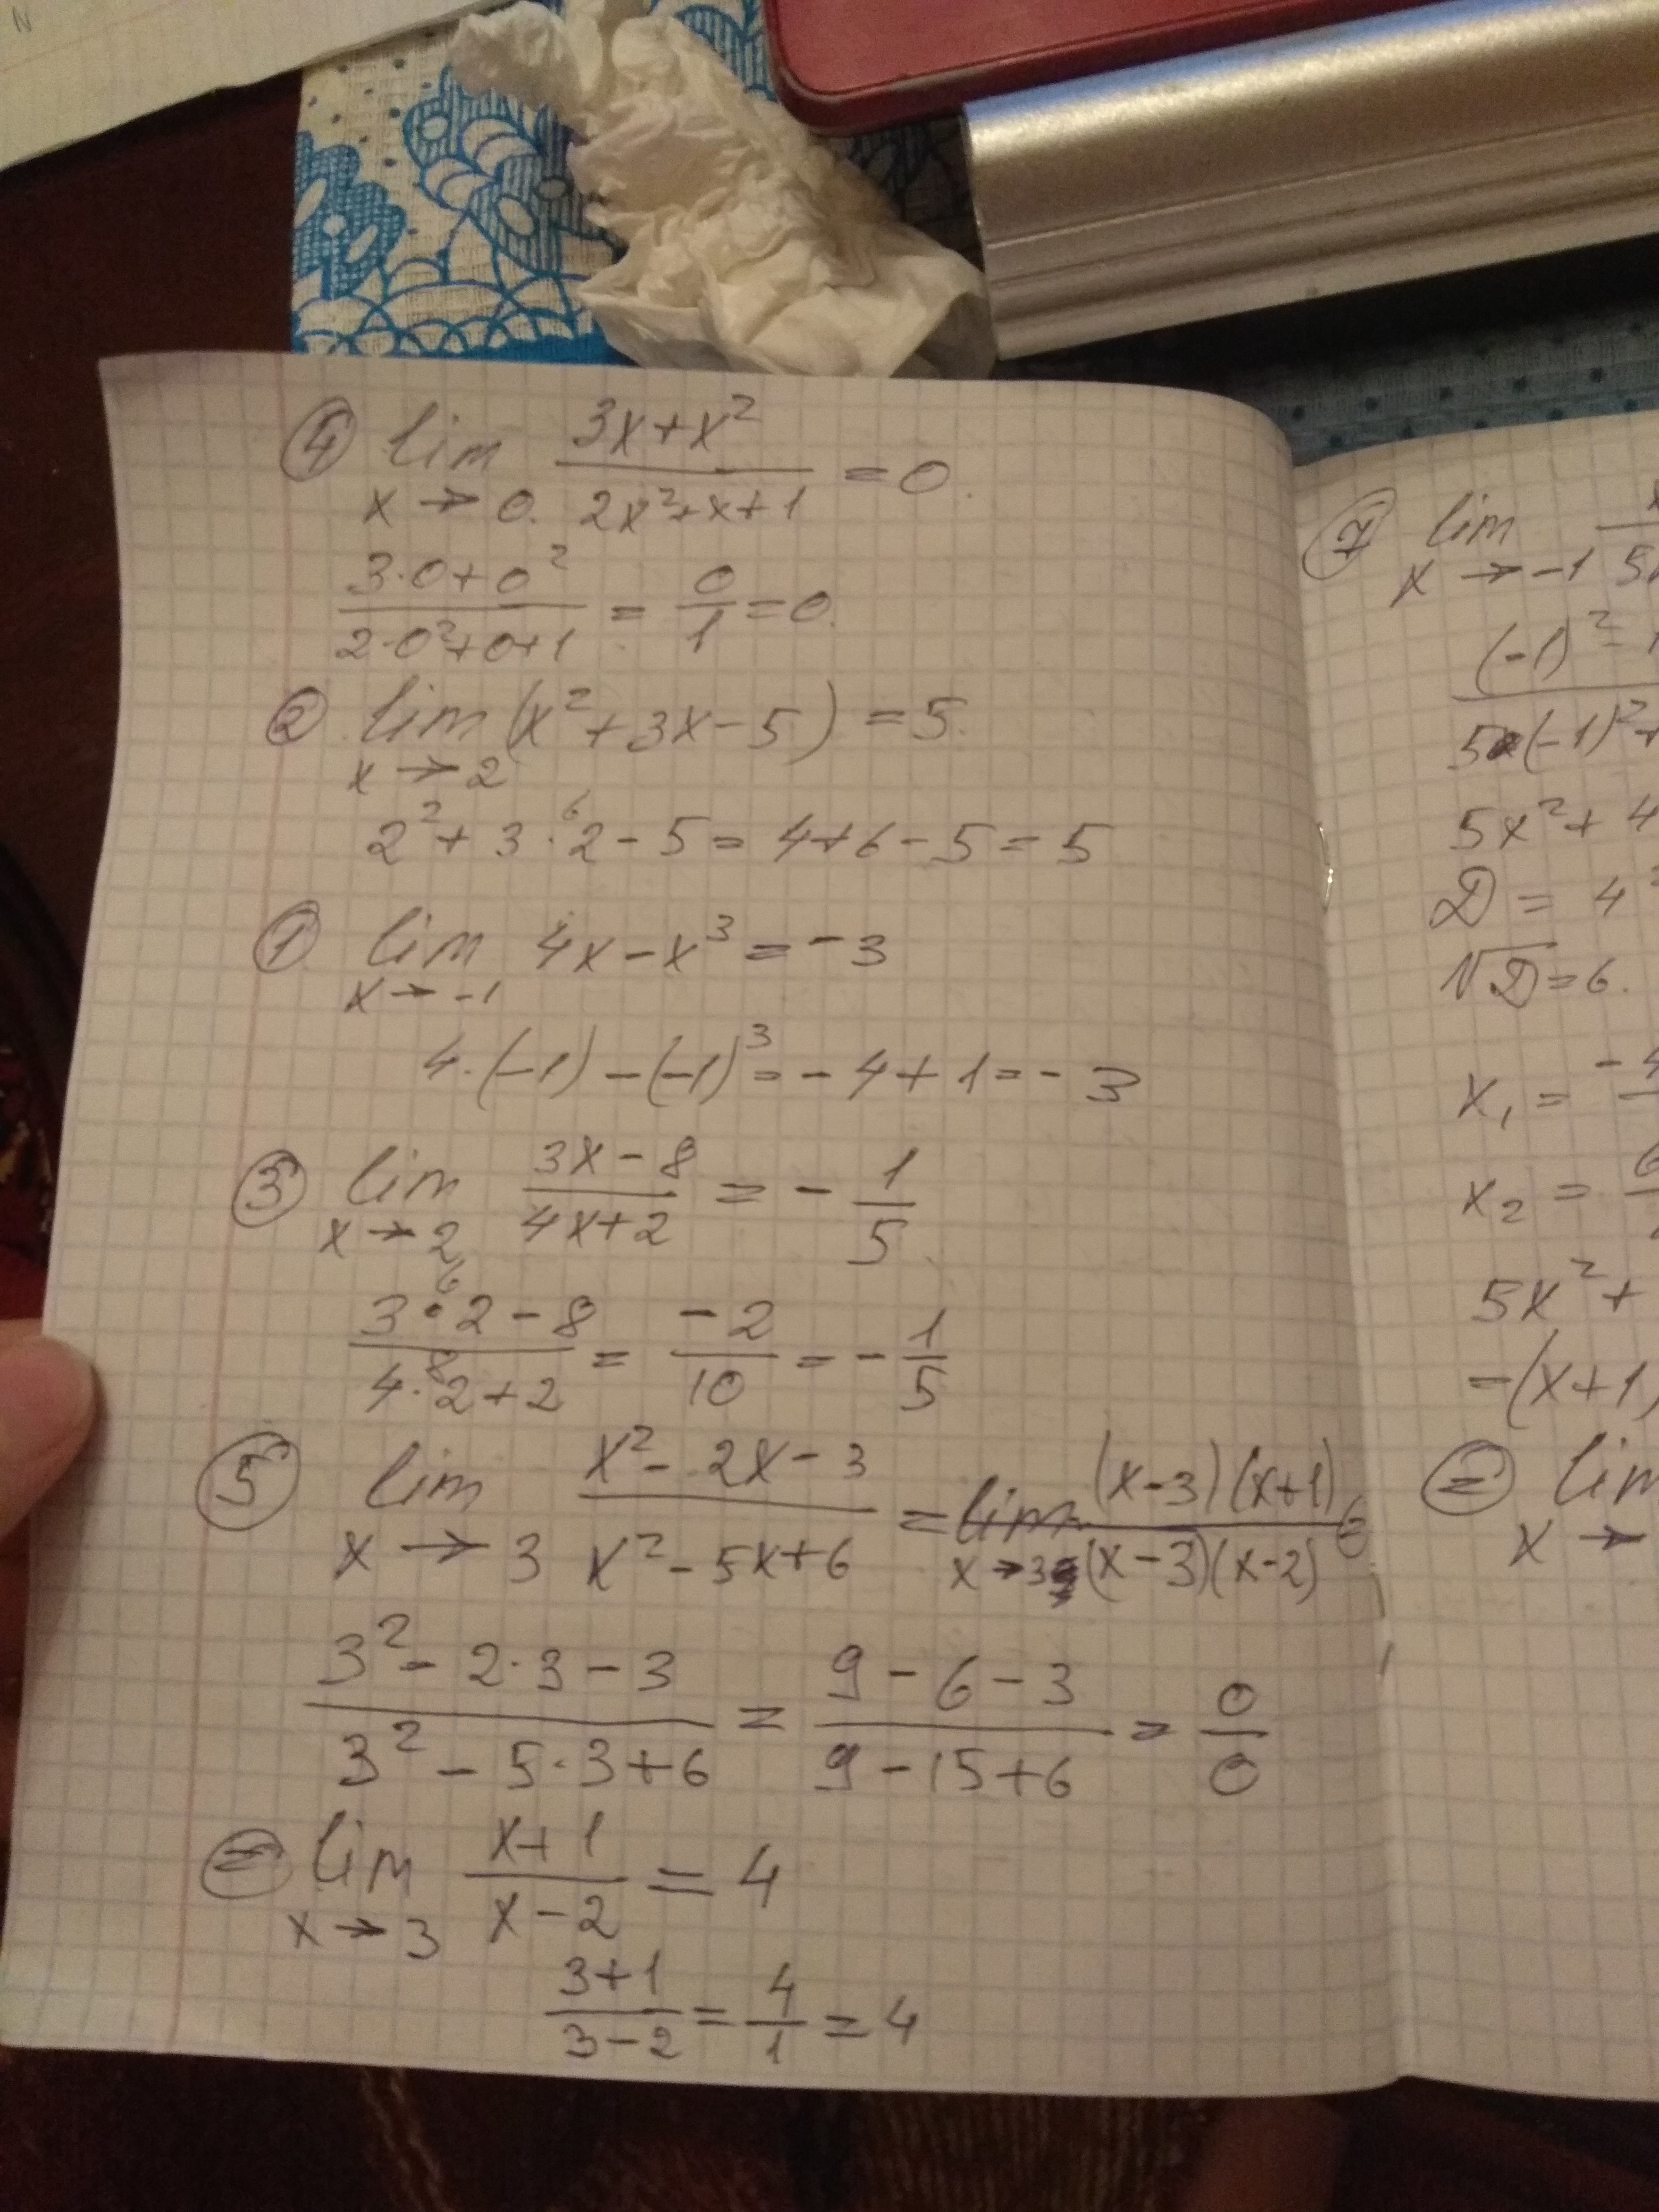 ④ lim x→0. (3x+x²)/(2x²+x+1) = 0.
(3·0+0²)/(2·0²+0+1) = 0/1 = 0.
② lim x→2 (x²+3x-5) = 5.
2²+3·2-5 = 4+6-5 = 5
6
① lim x→-1 4x-x³ = -3
4·(-1)-(-1)³ = -4+1 = -3
③ lim x→2 (3x-8)/(4x+2) = -1/5
6
(3·2-8)/(4·2+2) = -2/10 = -1/5
8
⑤ lim x→3 (x²-2x-3)/(x²-5x+6) = lim x→3 ((x-3)(x+1))/((x-3)(x-2)) ⊜
(3²-2·3-3)/(3²-5·3+6) = (9-6-3)/(9-15+6) = 0/0
⊜ lim x→3 (x+1)/(x-2) = 4
(3+1)/(3-2) = 4/1 = 4
⑦ lim x→-1
(-1)²-1
5(-1)²+
5x²+4
D = 4²
√D = 6.
x₁ = -4
x₂ =
5x²+
=(x+1)
⊜ lim x→